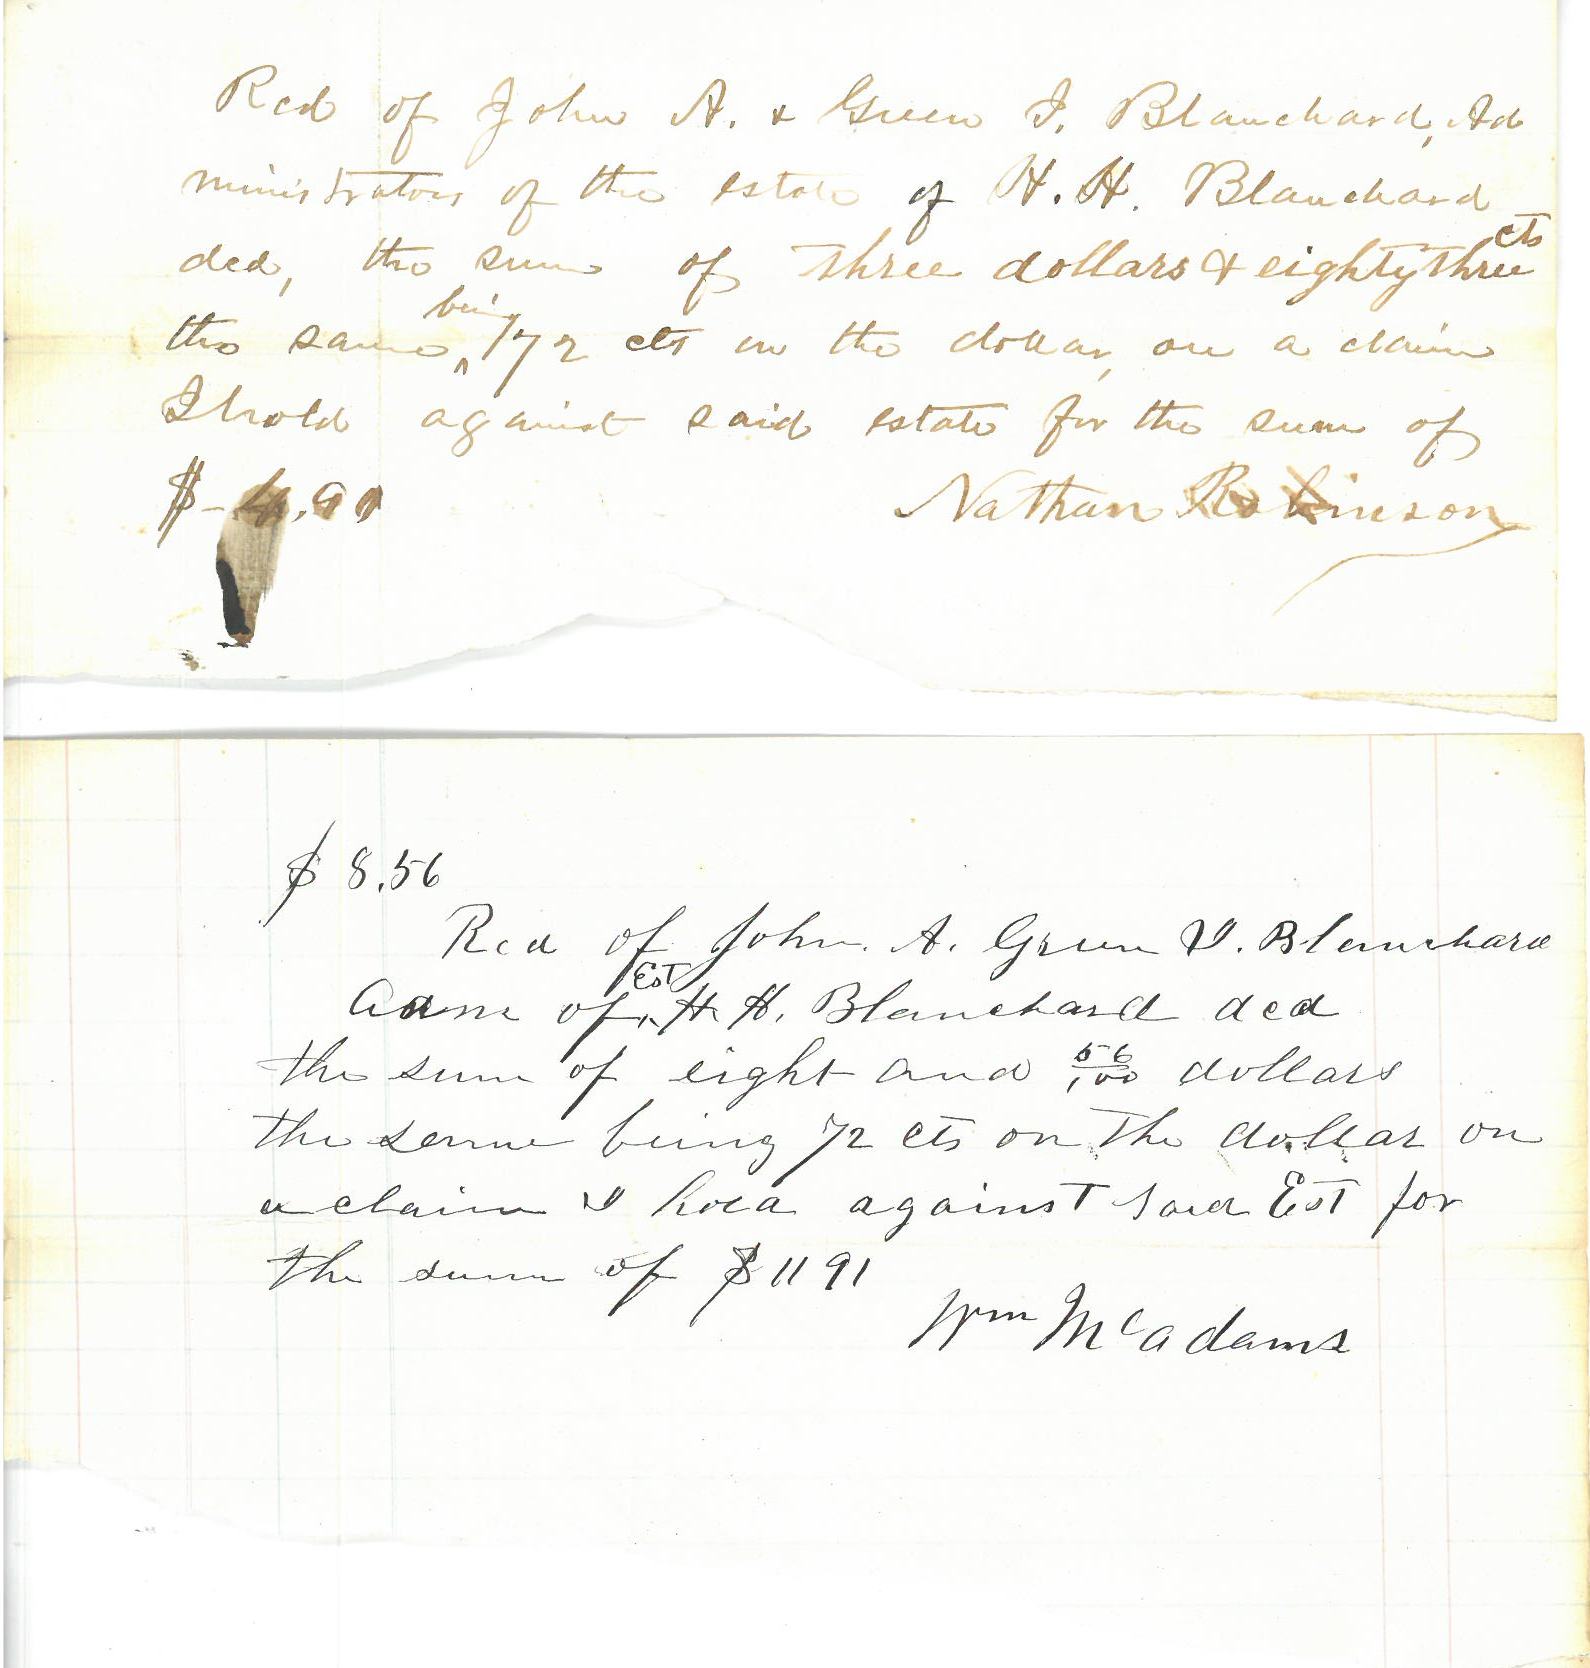 Recd of John A. & Green I. Blanchard, Ad
ministrators of the estate of H. H. Blanchard
decd, the sum of three dollars & eighty three cts
the same being 72 cts on the dollar, on a claim
I hold against said estate for the sum of
$ - 4.91 Nathan Robinson
$ 8.56
Recd of John. A. Green I. Blanchard
Adm of Est H H. Blanchard decd
the sum of eight and 56/100 dollars
the same being 72 cts on the dollar on
a claim I hold against said Est for
the sum of $ 11 91
Wm McAdams